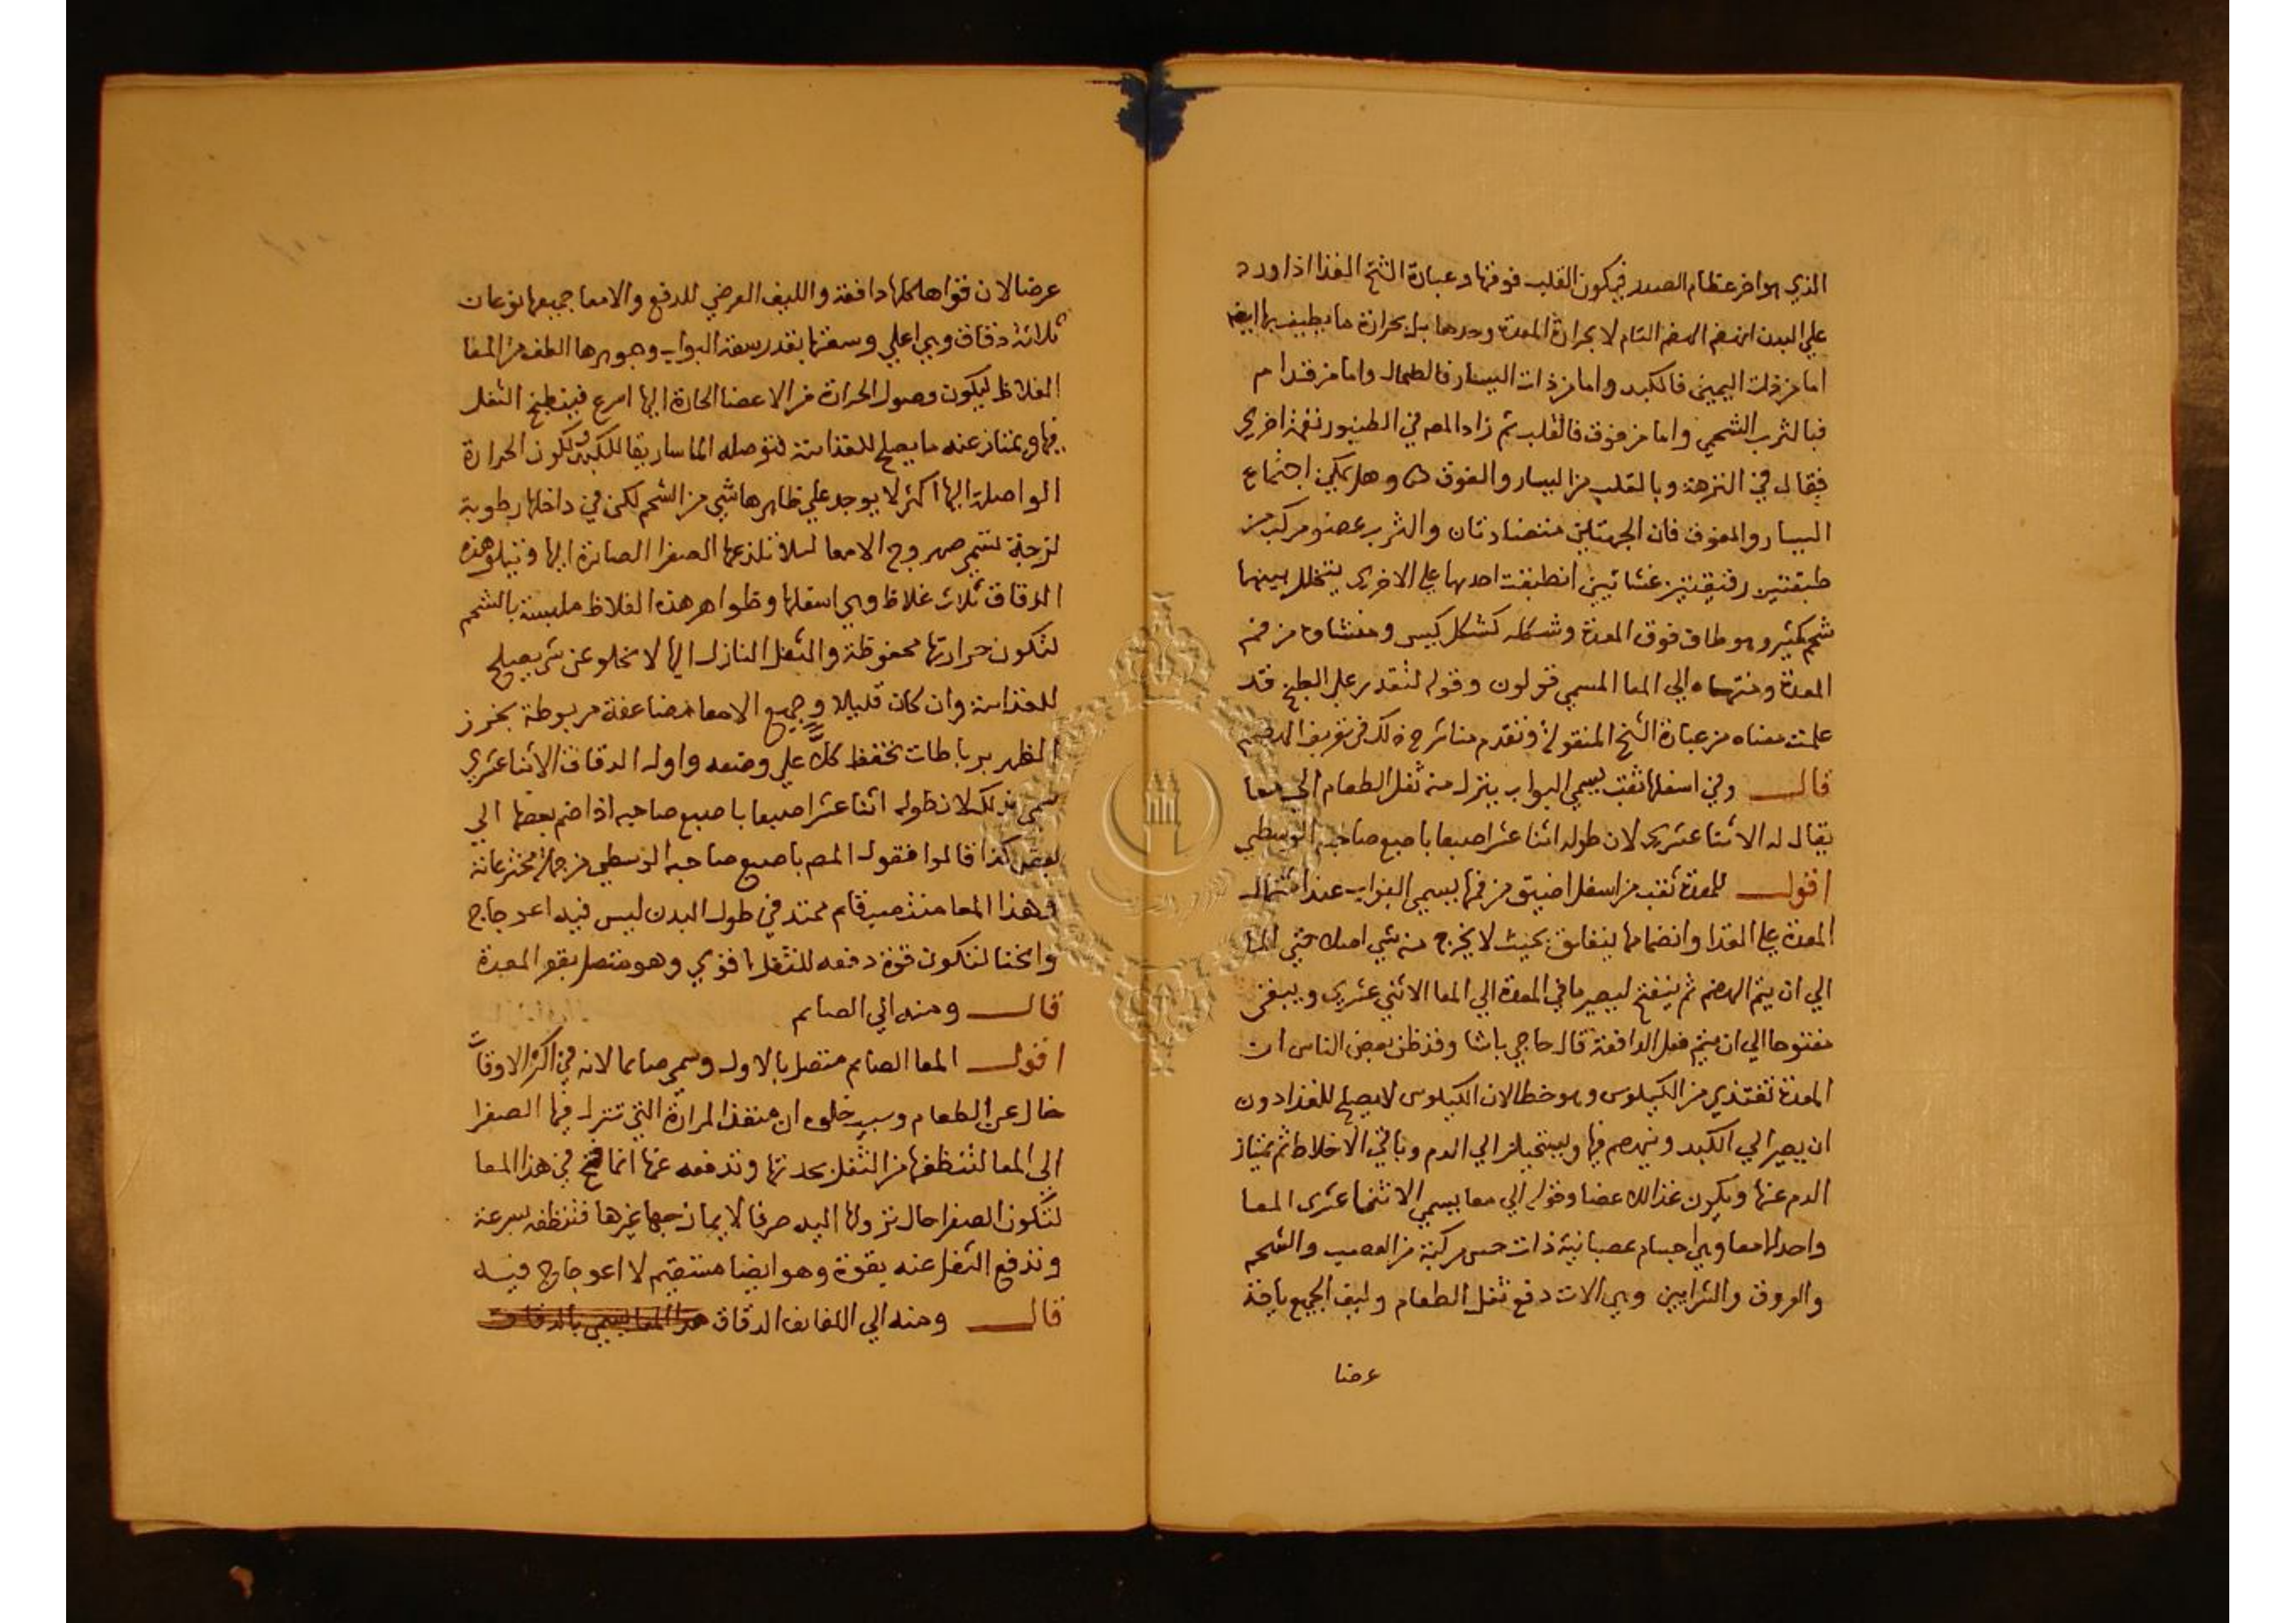 الذي هو اخر عظام الصدر فيكون القلب فوقها وعبارة الشخ الغذا اذا ورد
علي البدن انهضم الهضم التام لا بحرارة المعدة وحدها بل بحرارة ما يطيف بها ايضا
اما من ذات اليمين فالكبد واما من ذات اليسار فالطحال واما من قدام
فبالثرب الشحمي واما من فوق فالقلب ثم زاد المص في الطنبور نغمة اخري
فقال في النزهة وبالقلب من اليسار والفوق وهل يمكن اجتماع
اليسار والفوق فان الجهتين متضادتان والثرب عضو مركب من
طبقتين رقيقتين غشائيين انطبقت احدهما علي الاخري يتخلل بينهما
شحم كثير وهو طاف فوق المعدة وشكله كشكل كيس ومنشاوه من فم
المعدة ومنتهاه الي المعا المسمي قولون وقوله لتقدر علي الطبخ قد
علمت معناه من عبارة الشخ المنقولة وتقدم منا شرح ذلك في تعريف الهضم
قال وفي اسفلها ثقب يسمي البواب ينزل منه ثفل الطعام الي معا
يقال له الاثنا عشري لان طوله اثنا عشر اصبعا باصبع صاحبه الوسطي
اقول للمعدة ثقب من اسفل اضيق من فمها يسمي البواب عند اشتمال
المعدة علي الغذا وانضمامها ينغلق بحيث لا يخرج منه شي اصلا حتي الما
الي ان يتم الهضم ثم ينفتح ليصير ما في المعدة الي المعا الاثني عشري ويبقي
مفتوحا الي ان يتم فعل الدافعة قال حاجي باشا وقد ظن بعض الناس ان
المعدة تغتذي من الكيلوس وهو خطا لان الكيلوس لا يصلح للغذا دون
ان يصير الي الكبد وينهضم فيها ويستحيل الي الدم وباقي الاخلاط ثم يمتاز
الدم عنها ويكون غذا للاعضا وقوله الي معا يسمي الاثنا عشري المعا
واحد الامعا وهي اجسام عصبانية ذات حس مركبة من العصب والشحم
والعروق والشرايين وهي الات دفع ثفل الطعام وليف الجميع ياخذ
عرضا
عرضا لان قواها كلها دافعة والليف العرضي للدفع والامعا جميعها نوعان
ثلاثة دقاق وهي اعلي وسعتها بقدر سعة البواب وجوهرها الطف من المعا
الغلاظ ليكون وصول الحرارة من الاعضا الحارة اليها اسرع فينطبخ الثفل
فيها ويمتاز عنه ما يصلح للغذاية فتوصله الماساريقا للكبد ولكون الحرارة
الواصلة اليها اكثر لا يوجد علي ظاهرها شي من الشحم لكن في داخلها رطوبة
لزجة تسمي صهروج الامعا ليلا تلذعها الصفرا الصائرة اليها وتتلو هذه
الدقاق ثلاث غلاظ وهي اسفلها وظواهر هذه الغلاظ ملبسة بالشحم
لتكون حرارتها محفوظة والثفل النازل اليها لا يخلو عن شي يصلح
للغذاية وان كان قليلا وجميع الامعا مضاعفة مربوطة بخرز
الظهر برباطات تحفظ كلا علي وضعه واول الدقاق الاثنا عشري
سمي بذلك لان طوله اثنا عشر اصبعا باصبع صاحبه اذا ضم بعضها الي
بعض كذا قالوا فقول المص باصبع صاحبه الوسطي من جملة مخترعاته
وهذا المعا منتصب قايم ممتد في طول البدن ليس فيه اعوجاج
وانحنا لتكون قوة دفعه للثفل اقوي وهو متصل بقعر المعدة
قال ومنه الي الصايم
اقول المعا الصايم متصل بالاول وسمي صايما لانه في اكثر الاوقات
خال عن الطعام وسبب خلوه ان منفذ المرارة التي تنزل فيها الصفرا
الي المعا لتنظفها من الثفل بحدتها وتدفعه عنها انما فتح في هذا المعا
لتكون الصفرا حال نزولها اليه صرفا لا يمازجها غيرها فتنظفه بسرعة
وتدفع الثفل عنه بقوة وهو ايضا مستقيم لا اعوجاج فيه
قال ومنه الي اللفايف الدقاق هذا المعا يسمي بالدقاق